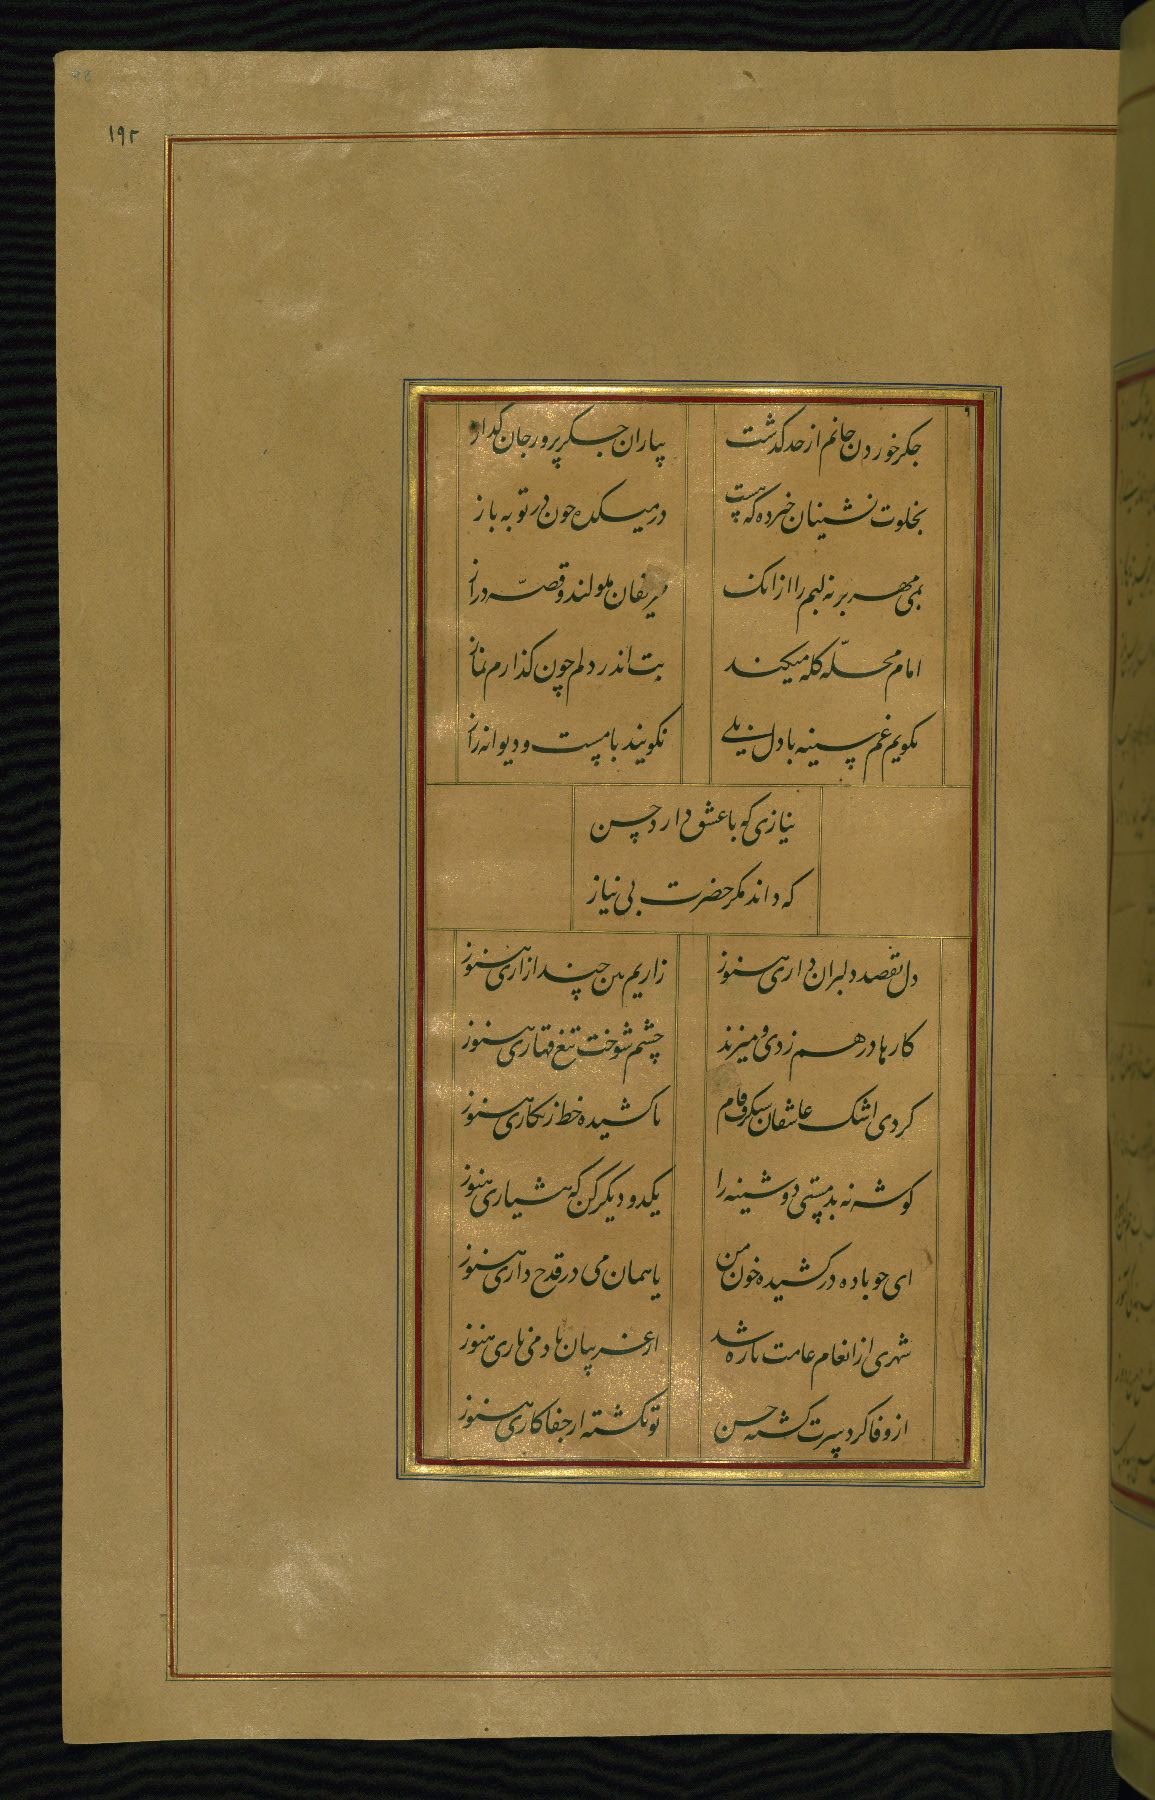 ۱۹۲
جکر خوردن جانم از حد کذشت
بیاران جکر پرور جان کداز
بخلوت نشینان خبر ده که هست
در میکده چون در توبه باز
بمی مهر برنه لبم را از انک
حریفان ملولند و قصّه دراز
امام محلّه کله میکند
بت اندر دلم چون کذارم نماز
نکویم غم سینه با دل بلی
نکویند با مست و دیوانه راز
نیازی که با عشق دارد حسن
که داند مکر حضرت بی نیاز
دل بقصد دلبران داری هنوز
زاریم من چند ازاری هنوز
کارها در هم زدی و میزند
چشم شوخت تیغ قهاری هنوز
کردی اشک عاشقان شنکرف فام
ناکشیده خط زنکاری هنوز
کوشه نه بدمستی دوشینه را
یکدو دیکر کن که هشیاری هنوز
ای چو باده در کشیده خون من
یا همان می در قدح داری هنوز
شهری از انعام عامت تازه شد
از غریبان یاد می ناری هنوز
از وفا کرد سرت کشته حسن
تو نکشته از جفاکاری هنوز